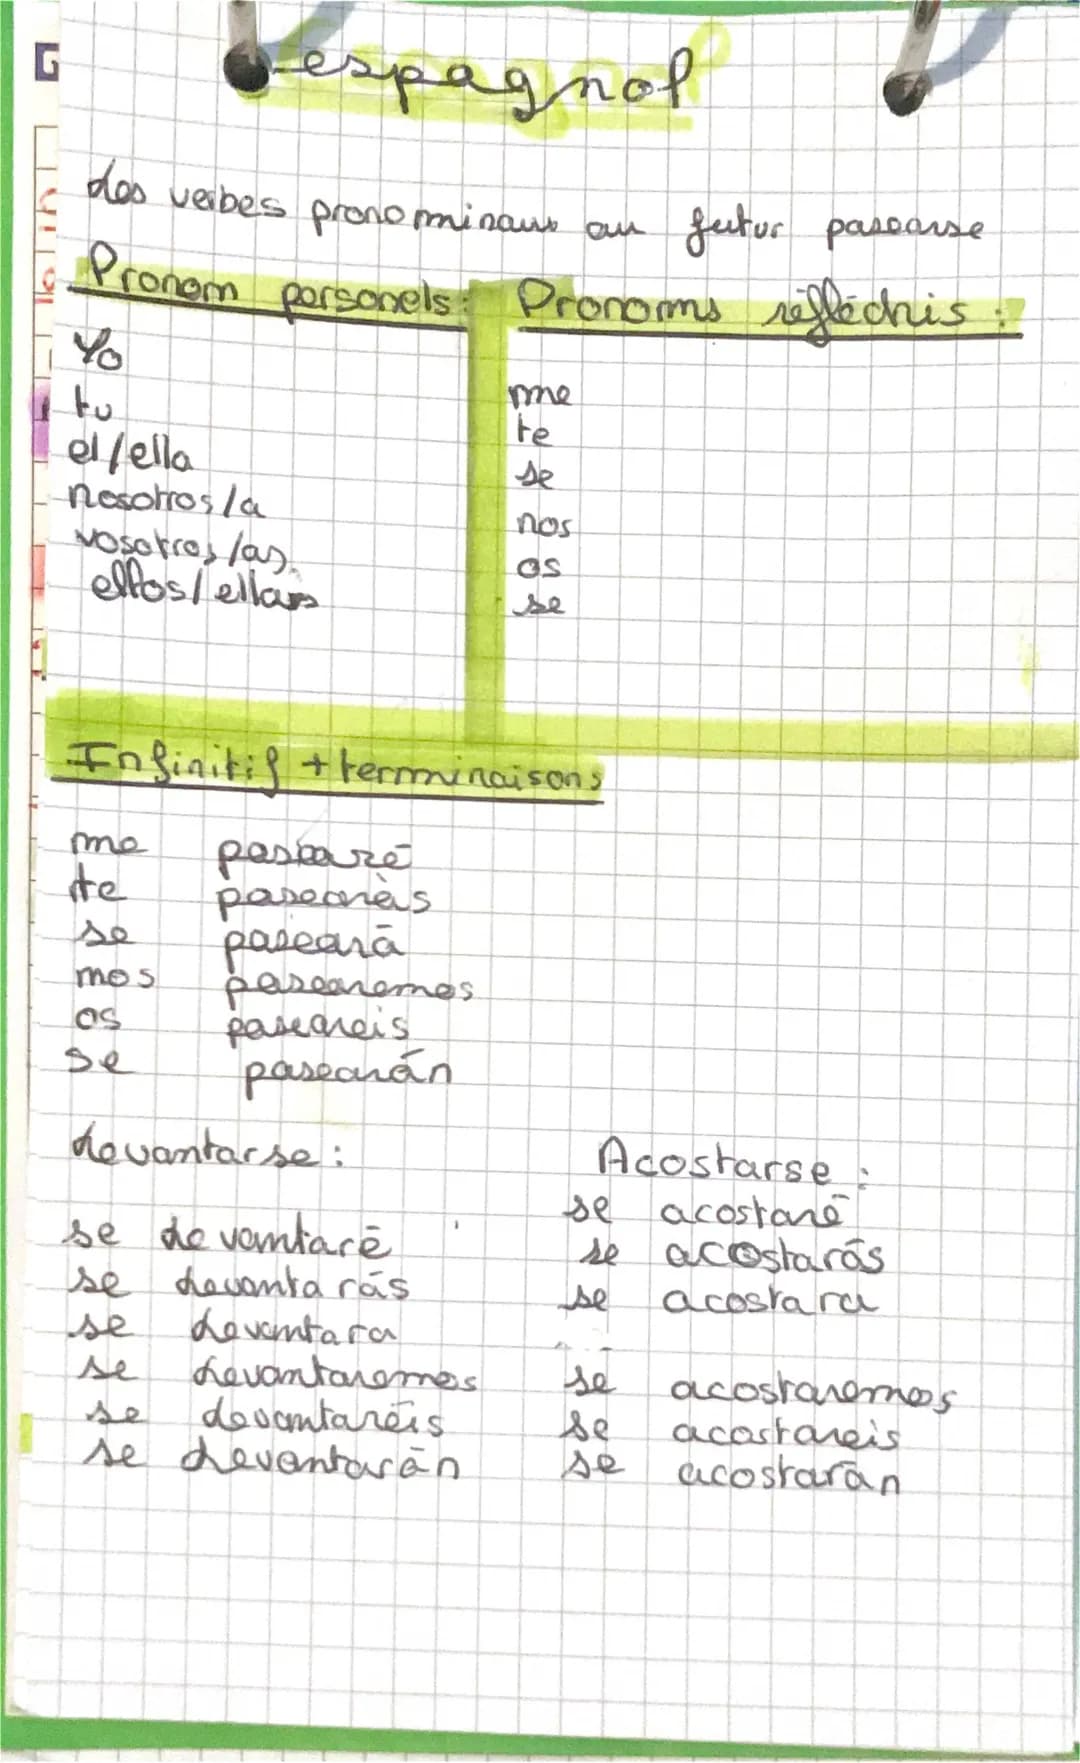 espagnol
les verbes pronominaux au futur pasearse
Pronom personels: Pronoms réfléchis :
Yo me
tu te
el/ella se
nosotros/a nos
vosotros/as os
ellos/ellas se
Infinitif + terminaisons
me pasearé
te pasearàs
se pasearā
mos pasearemos
os paseareis
se pasearán
Levantarse : Acostarse :
se levantarē se acostarē
se levantarás se acostarás
se levantara se acostara
se levantaremos se acostaremos
se levantaréis se acostareis
se levantarān se acostarān